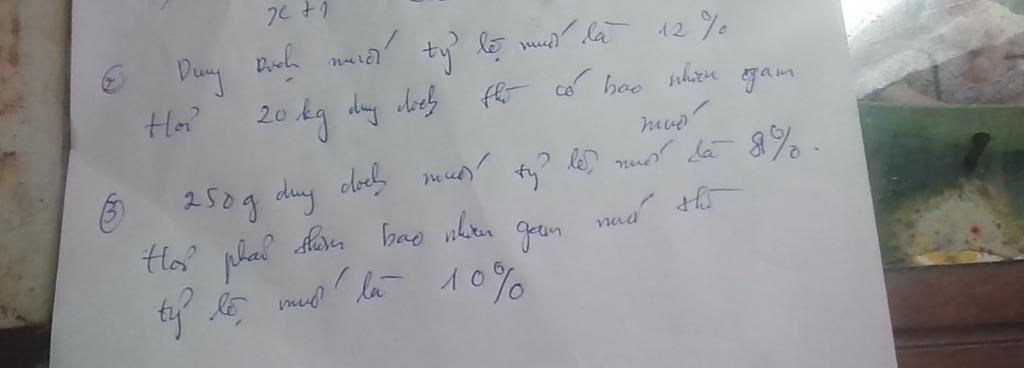 x + 1
② Dung dịch muối tỷ lệ muối là 12%
Hỏi 20 kg dung dịch thì có bao nhiêu gam
muối
③ 250g dung dịch muối tỷ lệ muối là 8%.
Hỏi phải thêm bao nhiêu gam muối thì
tỷ lệ muối là 10%